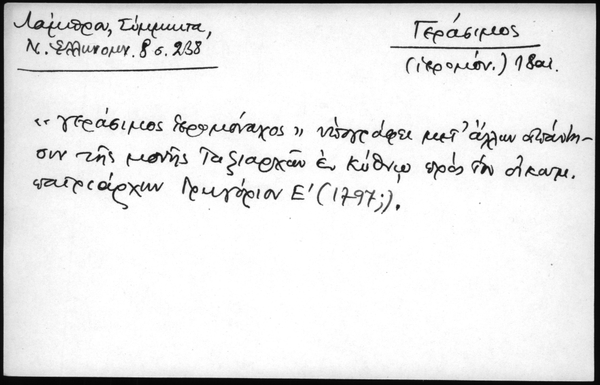 Λάμπρου, Σύμμικτα,
Ν. Ἑλληνομν. 8 σ. 238
Γεράσιμος
(ἱερομόν.) 18 αἰ.
«γεράσιμος ἱερομόναχος» ὑπογράφει μετ' ἄλλων ἀπάντη-
σιν τῆς μονῆς Ταξιαρχῶν ἐν Κύθνῳ πρὸς τὸν οἰκουμ.
πατριάρχην Γρηγόριον Ε' (1797;).